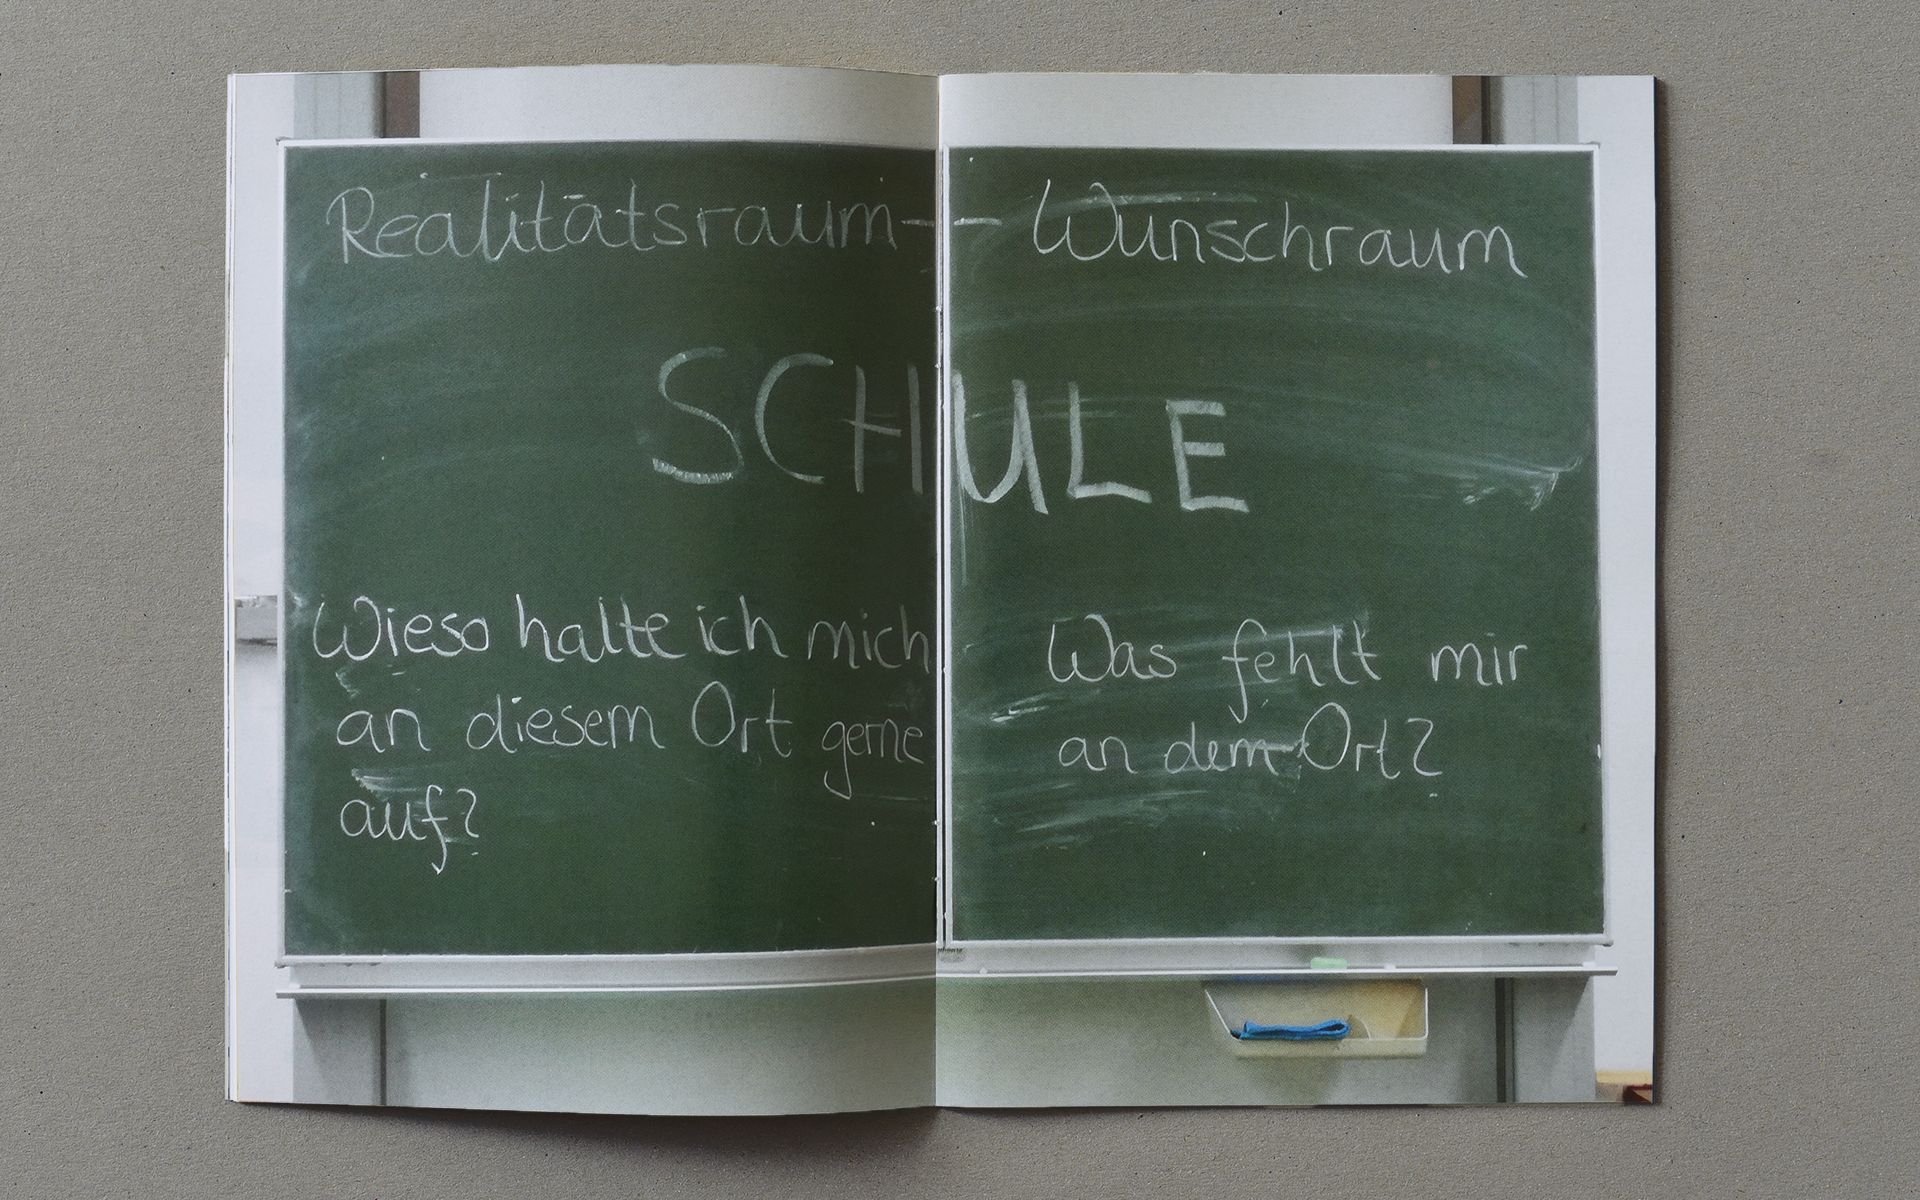 Realitätsraum-- Wunschraum
SCHULE
Wieso halte ich mich
an diesem Ort gerne
auf?
Was fehlt mir
an dem Ort?